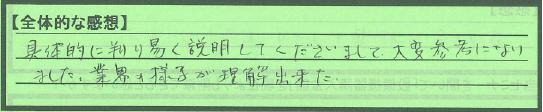 【全体的な感想】
具体的に判り易く説明してくださいまして、大変参考になり
ました。業界の様子が理解出来た。